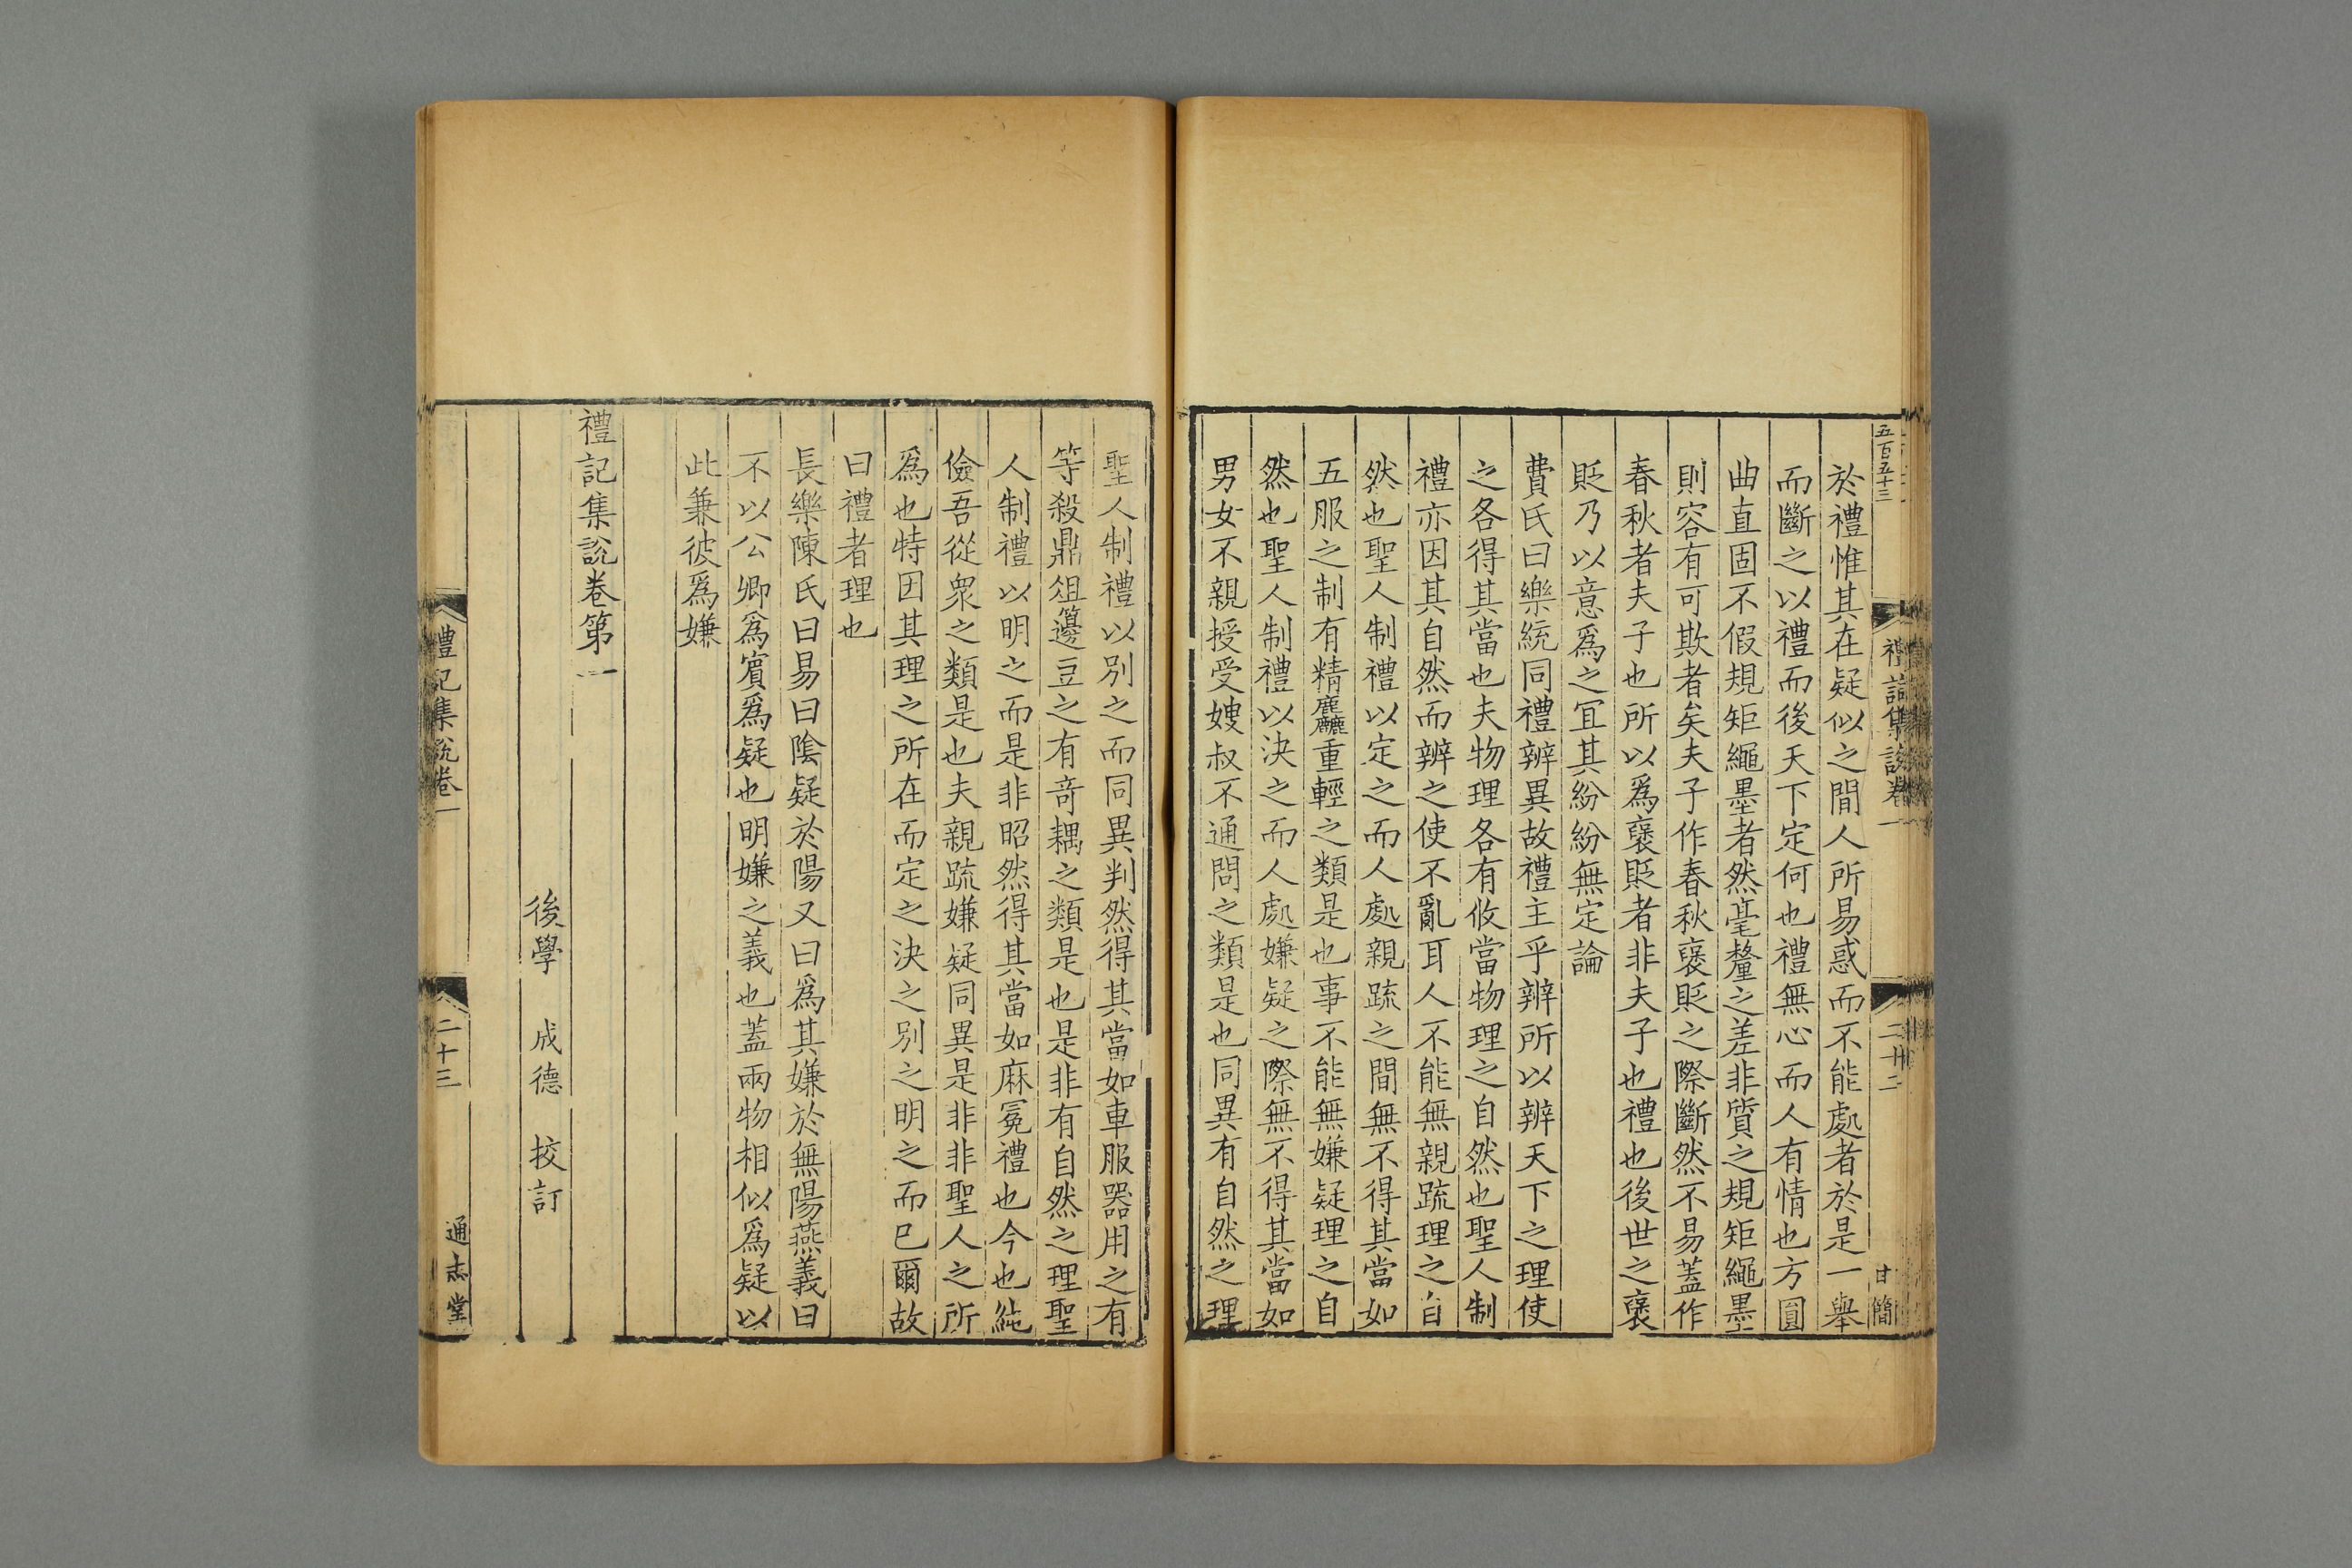 五百五十三
禮記集說卷一
二十二
甘簡
於禮惟其在疑似之間人所易惑而不能處者於是一舉
而斷之以禮而後天下定何也禮無心而人有情也方圓
曲直固不假規矩繩墨者然毫釐之差非質之規矩繩墨
則容有可欺者矣夫子作春秋襃貶之際斷然不易蓋作
春秋者夫子也所以爲襃貶者非夫子也禮也後世之襃
貶乃以意爲之冝其紛紛無定論
費氏曰樂統同禮辨異故禮主乎辨所以辨天下之理使
之各得其當也夫物理各有攸當物理之自然也聖人制
禮亦因其自然而辨之使不亂耳人不能無親疏理之自
然也聖人制禮以定之而人處親疏之間無不得其當如
五服之制有精麤重輕之類是也事不能無嫌疑理之自
然也聖人制禮以決之而人處嫌疑之際無不得其當如
男女不親授受嫂叔不通問之類是也同異有自然之理
聖人制禮以別之而同異判然得其當如車服器用之有
等殺鼎俎籩豆之有竒耦之類是也是非有自然之理聖
人制禮以明之而是非昭然得其當如麻冕禮也今也純
儉吾從衆之類是也夫親疏嫌疑同異是非非聖人之所
爲也特因其理之所在而定之決之別之明之而已爾故
曰禮者理也
長樂陳氏曰易曰陰疑於陽又曰爲其嫌於無陽燕義曰
不以公卿爲賓爲疑也明嫌之義也蓋兩物相似爲疑以
此兼彼爲嫌
禮記集說卷第一
後學 成德 挍訂
禮記集說卷一
二十三
通志堂